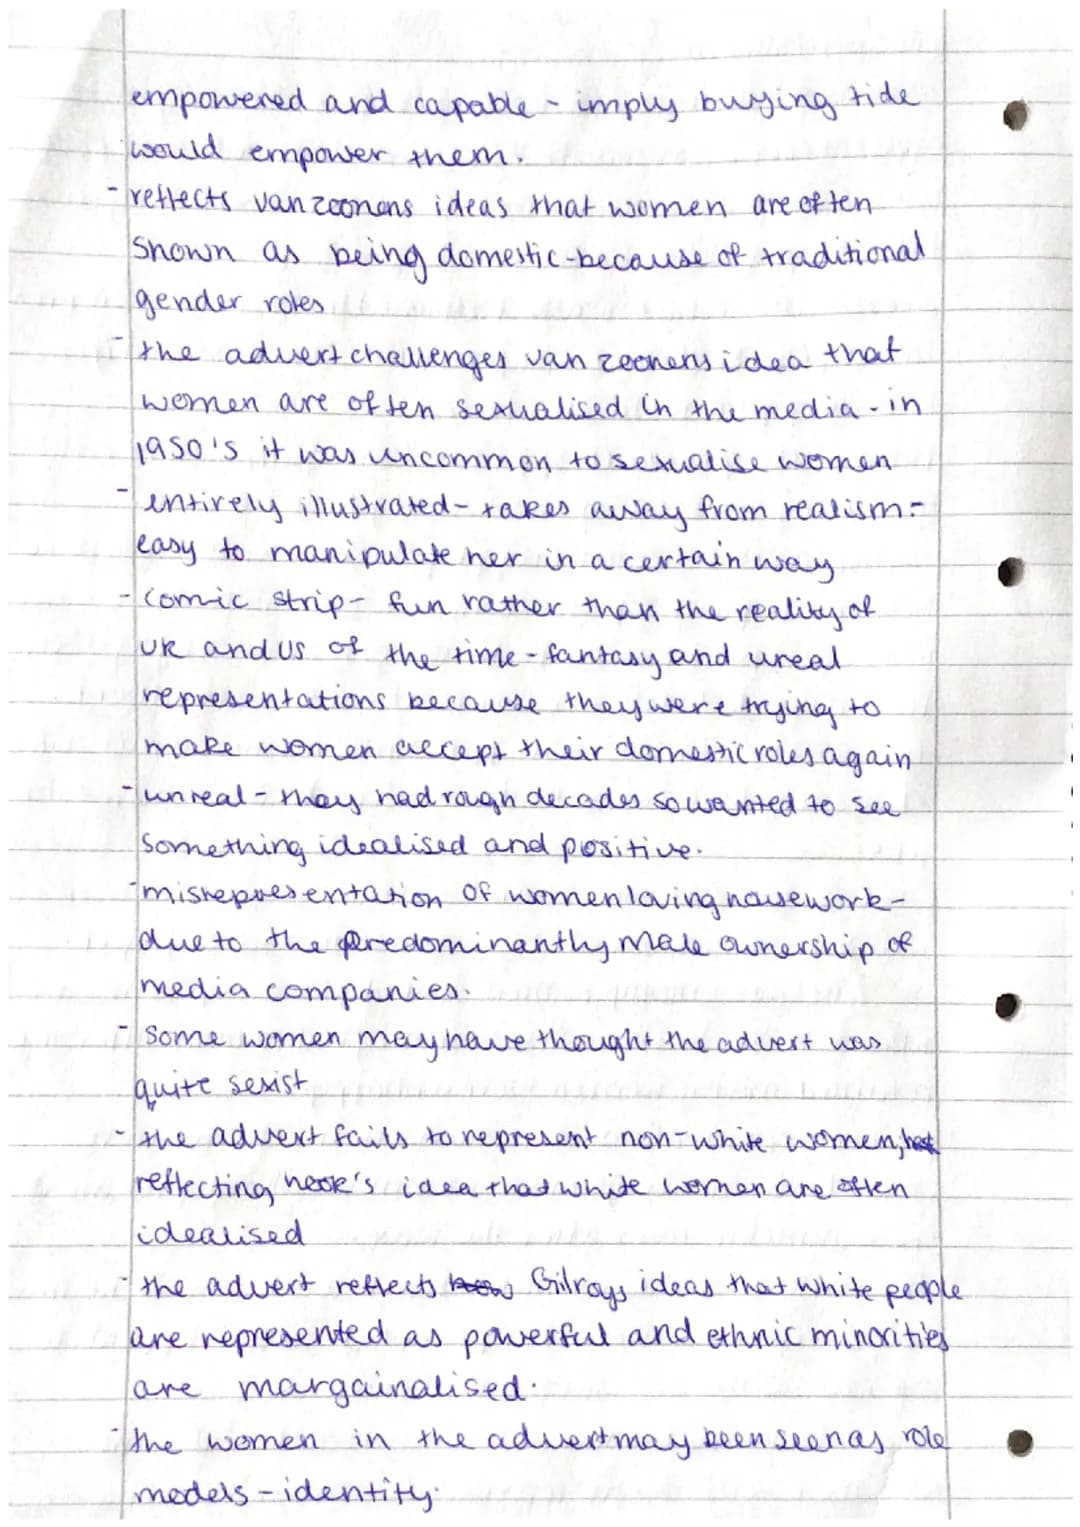 empowered and capable - imply buying tide
would empower them.
- reflects van zoonens ideas that women are often
shown as being domestic - because of traditional
gender roles
- the advert challenges van zoonens idea that
women are often sexualised in the media - in
1950's it was uncommon to sexualise women
- entirely illustrated - takes away from realism -
easy to manipulate her in a certain way
- comic strip - fun rather than the reality of
UK and US of the time - fantasy and ureal
representations because they were trying to
make women accept their domestic roles again
- unreal - they had rough decades so wanted to see
something idealised and positive.
- misrepresentation of women loving housework -
due to the predominantly male ownership of
media companies.
- some women may have thought the advert was
quite sexist
- the advert fails to represent non-white women,
reflecting hook's idea that white women are often
idealised
- the advert reflects Gilroys ideas that white people
are represented as powerful and ethnic minorities
are margainalised.
- the women in the advert may been seen as role
models - identity.